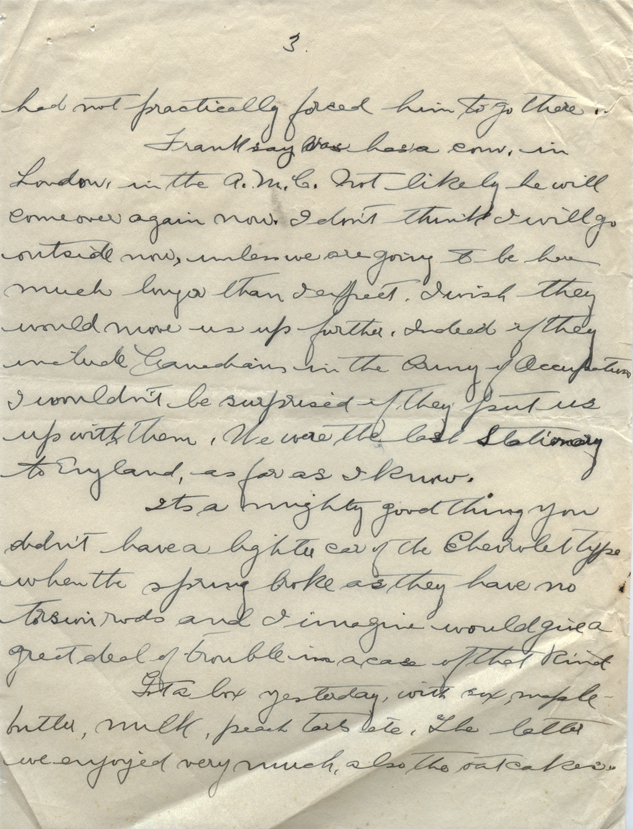 3.
had not practically forced him to go there.
Frank say has a com. in
London, in the A.M.C. Not likely he will
come over again now. I don't think I will go
outside now, unless we are going to be here
much longer than I expect. I wish they
would move us up further. Indeed if they
include Canadians in the Army of Occupation
I wouldn't be surprised if they put us
up with them. We were the last Stationary
to England, as far as I know.
Its a mighty good thing you
didn't have a lighter car of the Chevrolet type
when the spring broke as they have no
torsion rods and I imagine would give a
great deal of trouble in a case of that kind
box yesterday, with sox, maple
butter, milk, peach tarts etc. The latter
we enjoyed very much, also the oatcakes.